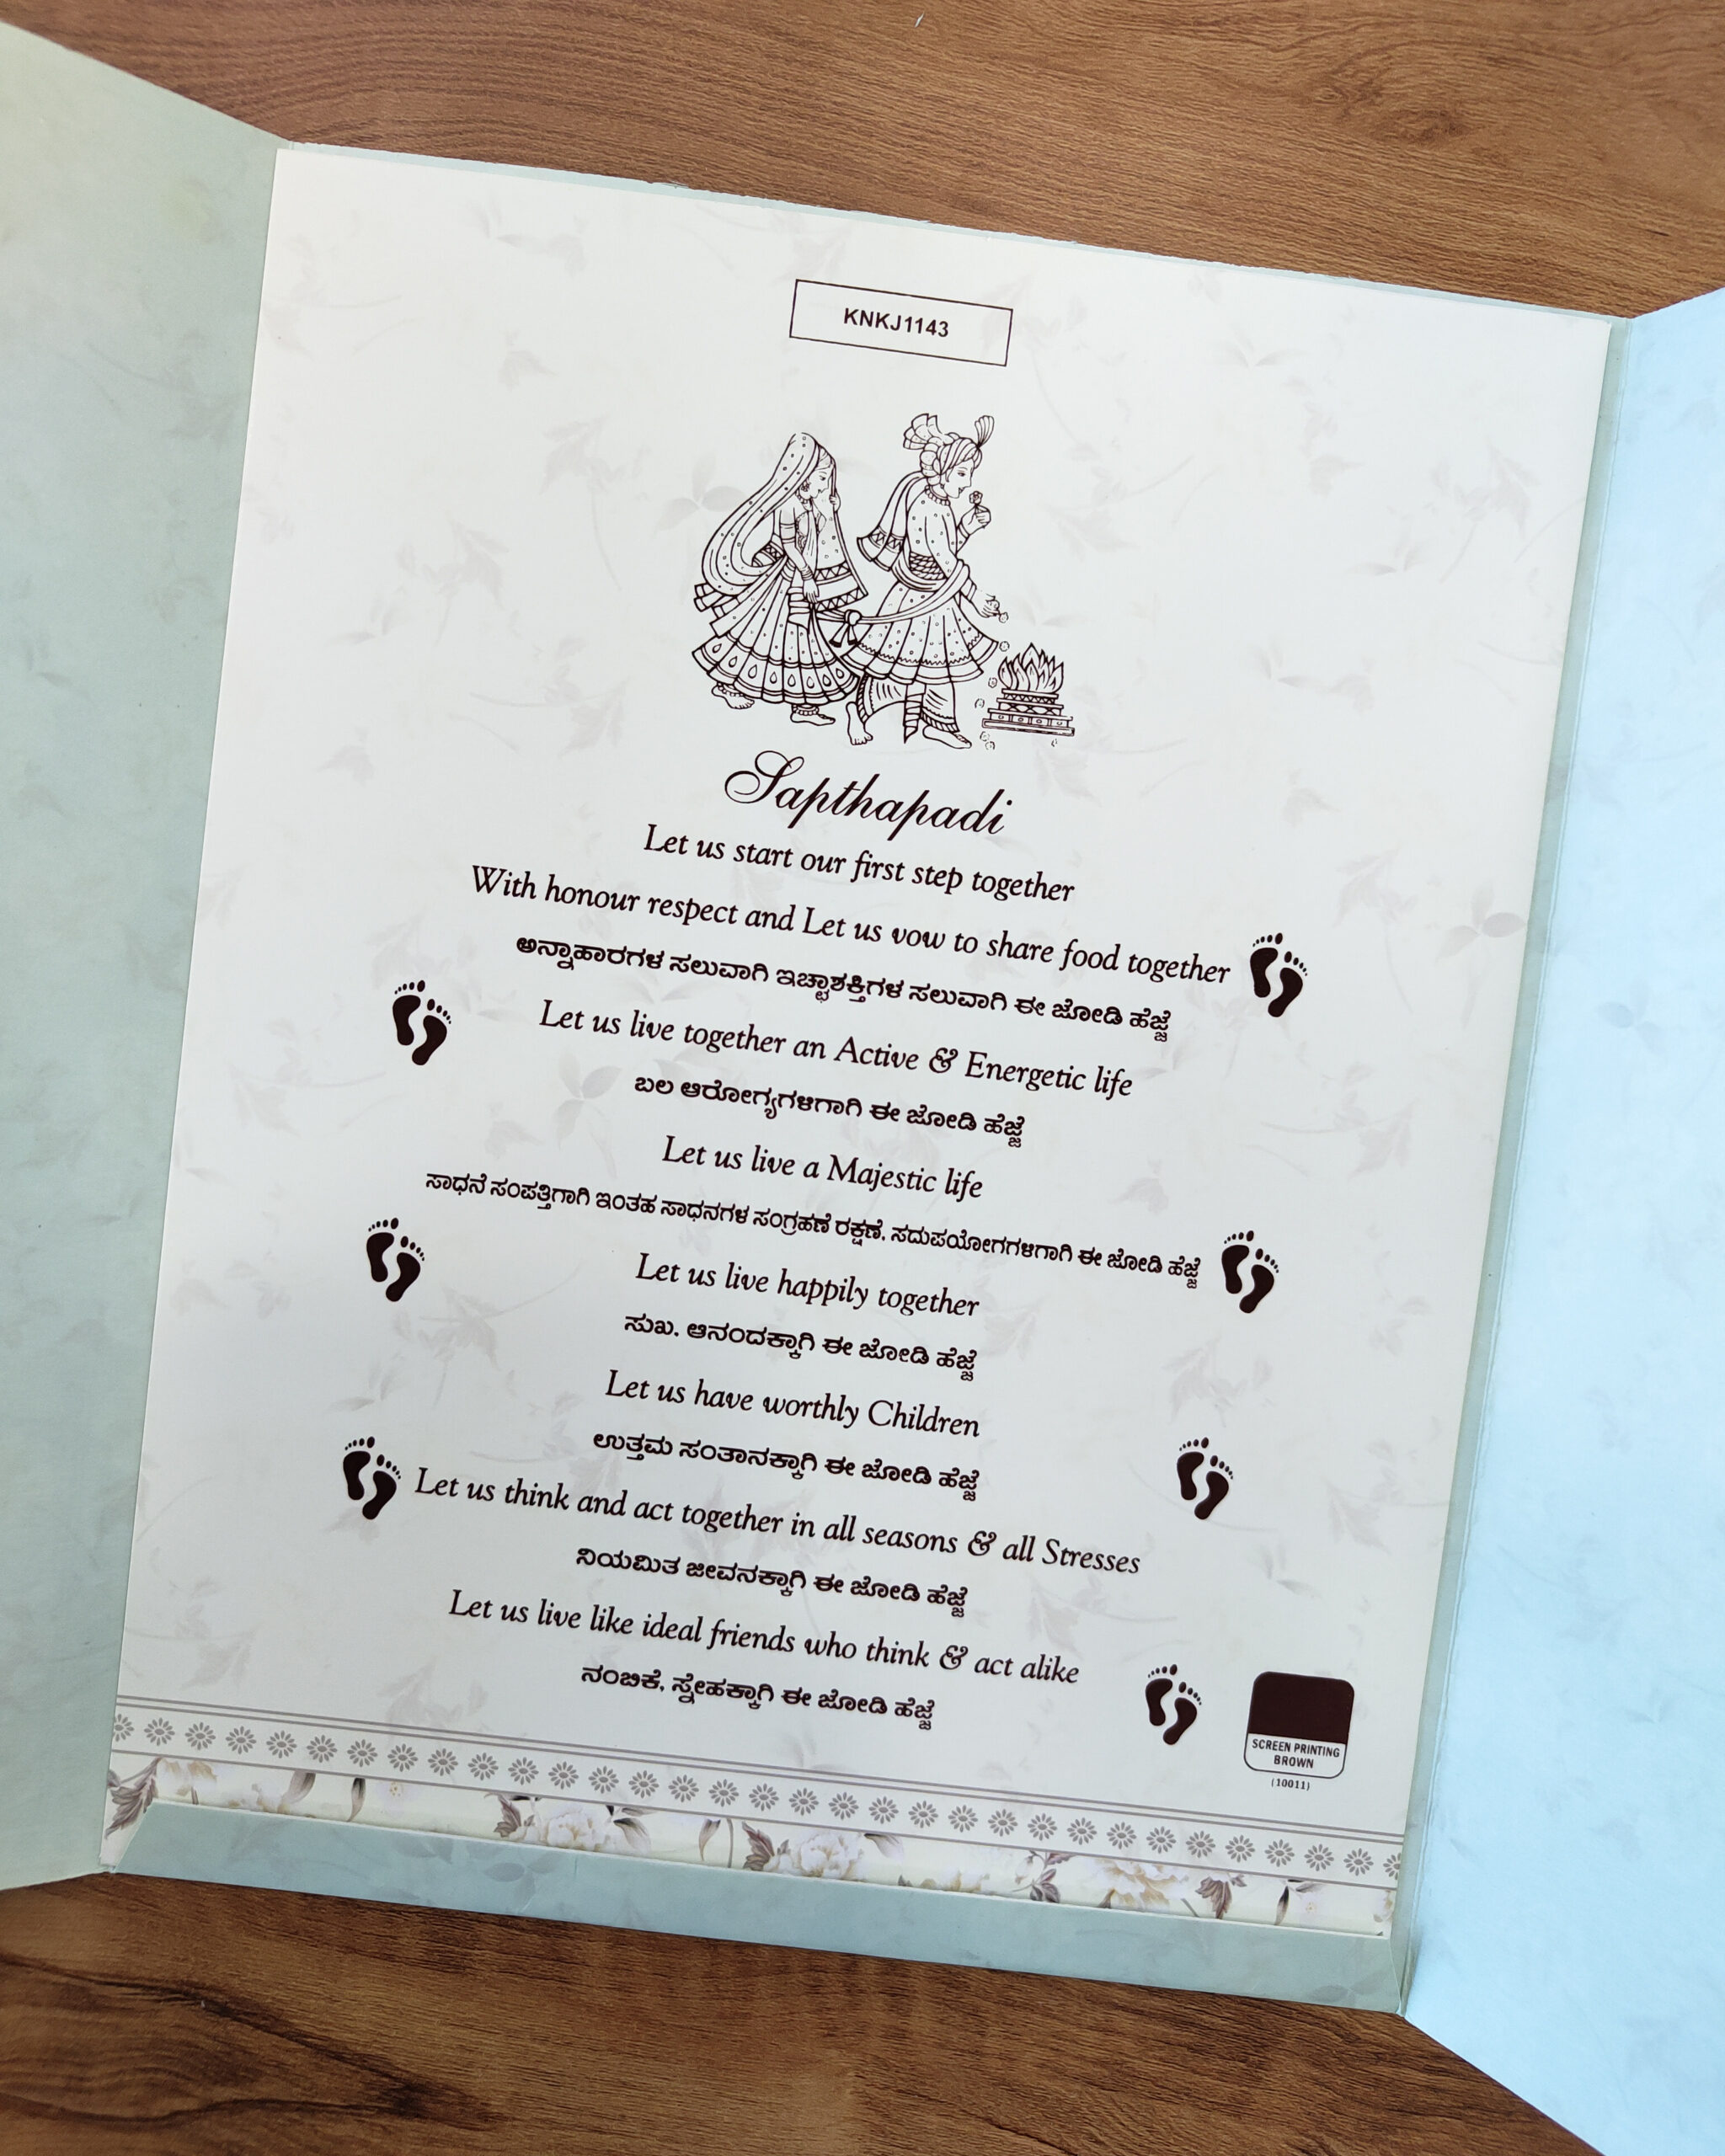 KNKJ1143
Sapthapadi
Let us start our first step together
With honour respect and Let us vow to share food together
ಅನ್ನಾಹಾರಗಳ ಸಲುವಾಗಿ ಇಚ್ಛಾಶಕ್ತಿಗಳ ಸಲುವಾಗಿ ಈ ಜೋಡಿ ಹೆಜ್ಜೆ
Let us live together an Active & Energetic life
ಬಲ ಆರೋಗ್ಯಗಳಿಗಾಗಿ ಈ ಜೋಡಿ ಹೆಜ್ಜೆ
Let us live a Majestic life
ಸಾಧನೆ ಸಂಪತ್ತಿಗಾಗಿ ಇಂತಹ ಸಾಧನಗಳ ಸಂಗ್ರಹಣೆ ರಕ್ಷಣೆ, ಸದುಪಯೋಗಗಳಿಗಾಗಿ ಈ ಜೋಡಿ ಹೆಜ್ಜೆ
Let us live happily together
ಸುಖ, ಆನಂದಕ್ಕಾಗಿ ಈ ಜೋಡಿ ಹೆಜ್ಜೆ
Let us have worthly Children
ಉತ್ತಮ ಸಂತಾನಕ್ಕಾಗಿ ಈ ಜೋಡಿ ಹೆಜ್ಜೆ
Let us think and act together in all seasons & all Stresses
ನಿಯಮಿತ ಜೀವನಕ್ಕಾಗಿ ಈ ಜೋಡಿ ಹೆಜ್ಜೆ
Let us live like ideal friends who think & act alike
ನಂಬಿಕೆ, ಸ್ನೇಹಕ್ಕಾಗಿ ಈ ಜೋಡಿ ಹೆಜ್ಜೆ
SCREEN PRINTING
BROWN
(10011)